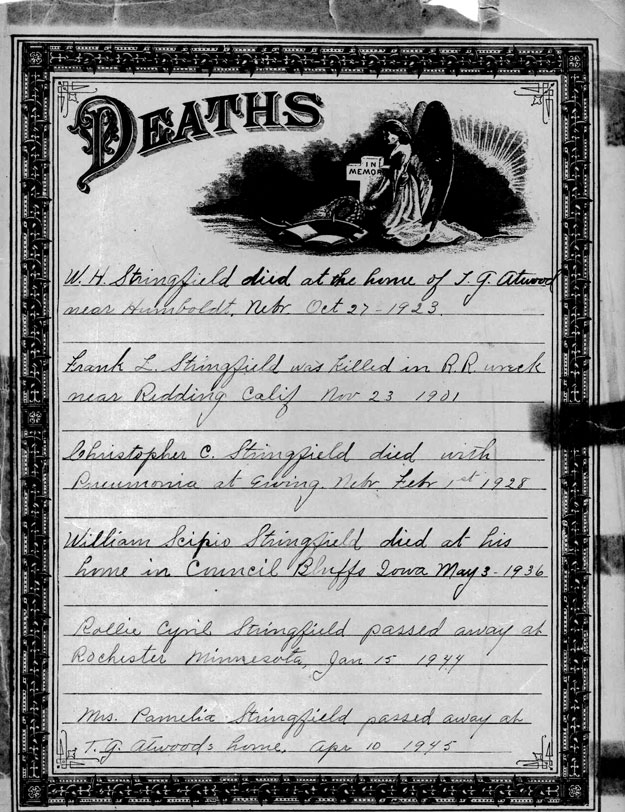 DEATHS
IN
MEMOR
W. H. Stringfield died at the home of T. G. Atwood
near Humboldt, Nebr Oct 27 - 1923.
Frank L. Stringfield was killed in R.R. wreck
near Redding Calif Nov 23 1901
Christopher C. Stringfield died with
Pneumonia at Ewing, Nebr Febr 1st 1928
William Scipio Stringfield died at his
home in Council Bluffs Iowa May 3 - 1936
Rollie Cyril Stringfield passed away at
Rochester Minnesota, Jan 15 1944
Mrs. Pamelia Stringfield passed away at
T. G. Atwoods home, Apr 10 1945